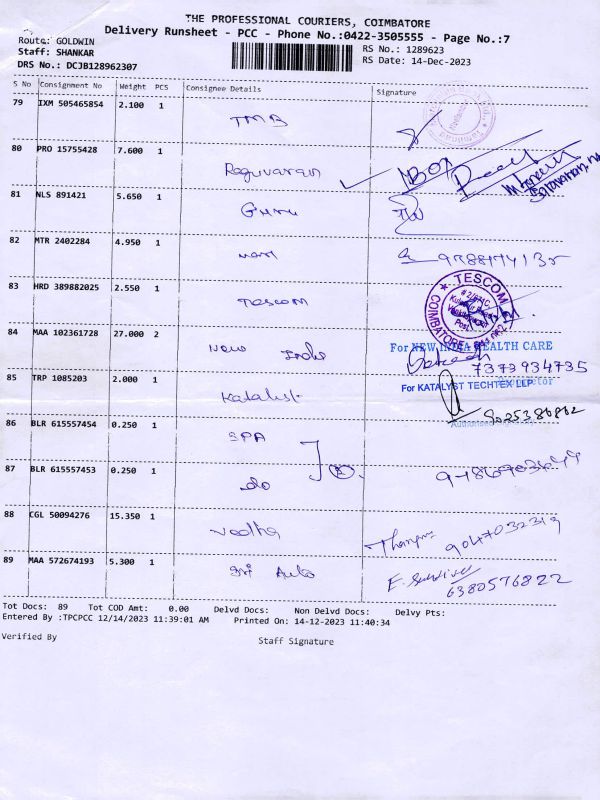 THE PROFESSIONAL COURIERS, COIMBATORE
Delivery Runsheet - PCC - Phone No.:0422-3505555 - Page No.:7
Route: GOLDWIN
Staff: SHANKAR
DRS No.: DCJB128962307
RS No.: 1289623
RS Date: 14-Dec-2023
S No Consignment No Weight PCS Consignee Details Signature
79 IXM 505465854 2.100 1 TMB
80 PRO 15755428 7.600 1 Reguvaran
81 NLS 891421 5.650 1 Guru
82 MTR 2402284 4.950 1
83 HRD 389882025 2.550 1 Tescom
TESCOM
COIMBATORE
84 MAA 102361728 27.000 2 New India
For NEW INDIA HEALTH CARE
7373934735
85 TRP 1085203 2.000 1 Katalist
For KATALYST TECHTEX LLP
86 BLR 615557454 0.250 1 SPA
87 BLR 615557453 0.250 1 do
88 CGL 50094276 15.350 1 Vedha
89 MAA 572674193 5.300 1 Sri Auto
6380576822
Tot Docs: 89 Tot COD Amt: 0.00 Delvd Docs: Non Delvd Docs: Delvy Pts:
Entered By :TPCPCC 12/14/2023 11:39:01 AM Printed On: 14-12-2023 11:40:34
Verified By Staff Signature